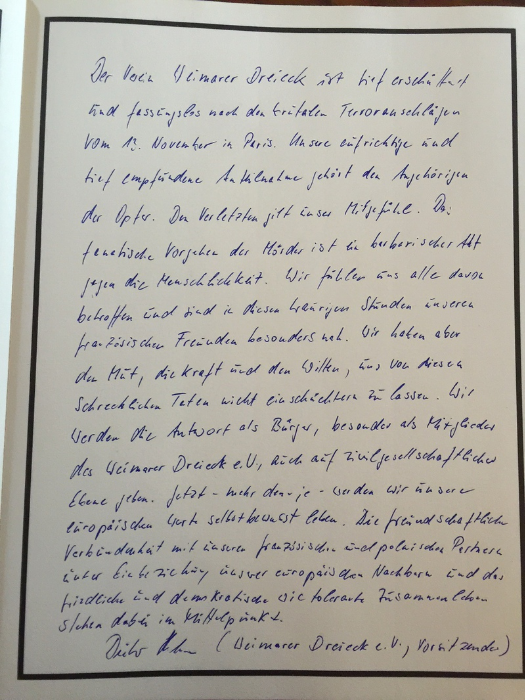 Der Verein Weimarer Dreieck ist tief erschüttert
und fassungslos nach den brutalen Terroranschlägen
vom 13. November in Paris. Unsere aufrichtige und
tief empfundene Anteilnahme gehört den Angehörigen
der Opfer. Den Verletzten gilt unser Mitgefühl. Das
fanatische Vorgehen der Mörder ist ein barbarischer Akt
gegen die Menschlichkeit. Wir fühlen uns alle davon
betroffen und sind in diesen traurigen Stunden unseren
französischen Freunden besonders nah. Wir haben aber
den Mut, die Kraft und den Willen, uns von diesen
schrecklichen Taten nicht einschüchtern zu lassen. Wir
werden die Antwort als Bürger, besonder als Mitglieder
des Weimarer Dreieck e.V., auch auf zivilgesellschaftlicher
Ebene geben. Jetzt - mehr denn je - werden wir unsere
europäischen Werte selbstbewusst leben. Die freundschaftliche
Verbundenheit mit unseren französischen und polnischen Partnern
unter Einbeziehung unserer europäischen Nachbarn und das
friedliche und demokratische wie tolerante Zusammenleben
stehen dabei im Mittelpunkt.
Dieter (Weimarer Dreieck e.V., Vorsitzender)